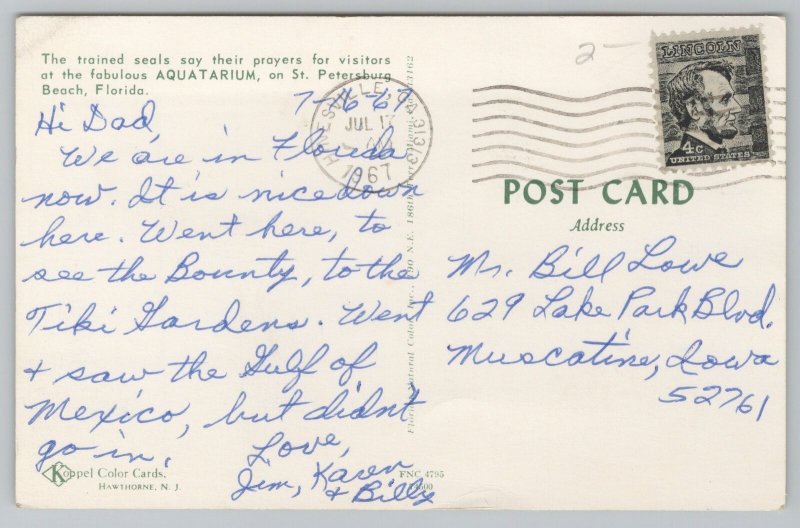 The trained seals say their prayers for visitors
at the fabulous AQUATARIUM, on St. Petersburg
Beach, Florida.
7-16-67
Hi Dad,
We are in Florida
now. It is nice down
here. Went here, to
see the Bounty, to the
Tiki Gardens. Went
+ saw the Gulf of
Mexico, but didn't
go in.
Love,
Jim, Karen
+ Billy
Koppel Color Cards.
HAWTHORNE, N. J.
FNC 4795
HINESVILLE, GA 31313
JUL 17
1967
2-
LINCOLN
4c
UNITED STATES
POST CARD
Address
Mr. Bill Lowe
629 Lake Park Blvd.
Muscatine, Iowa
52761